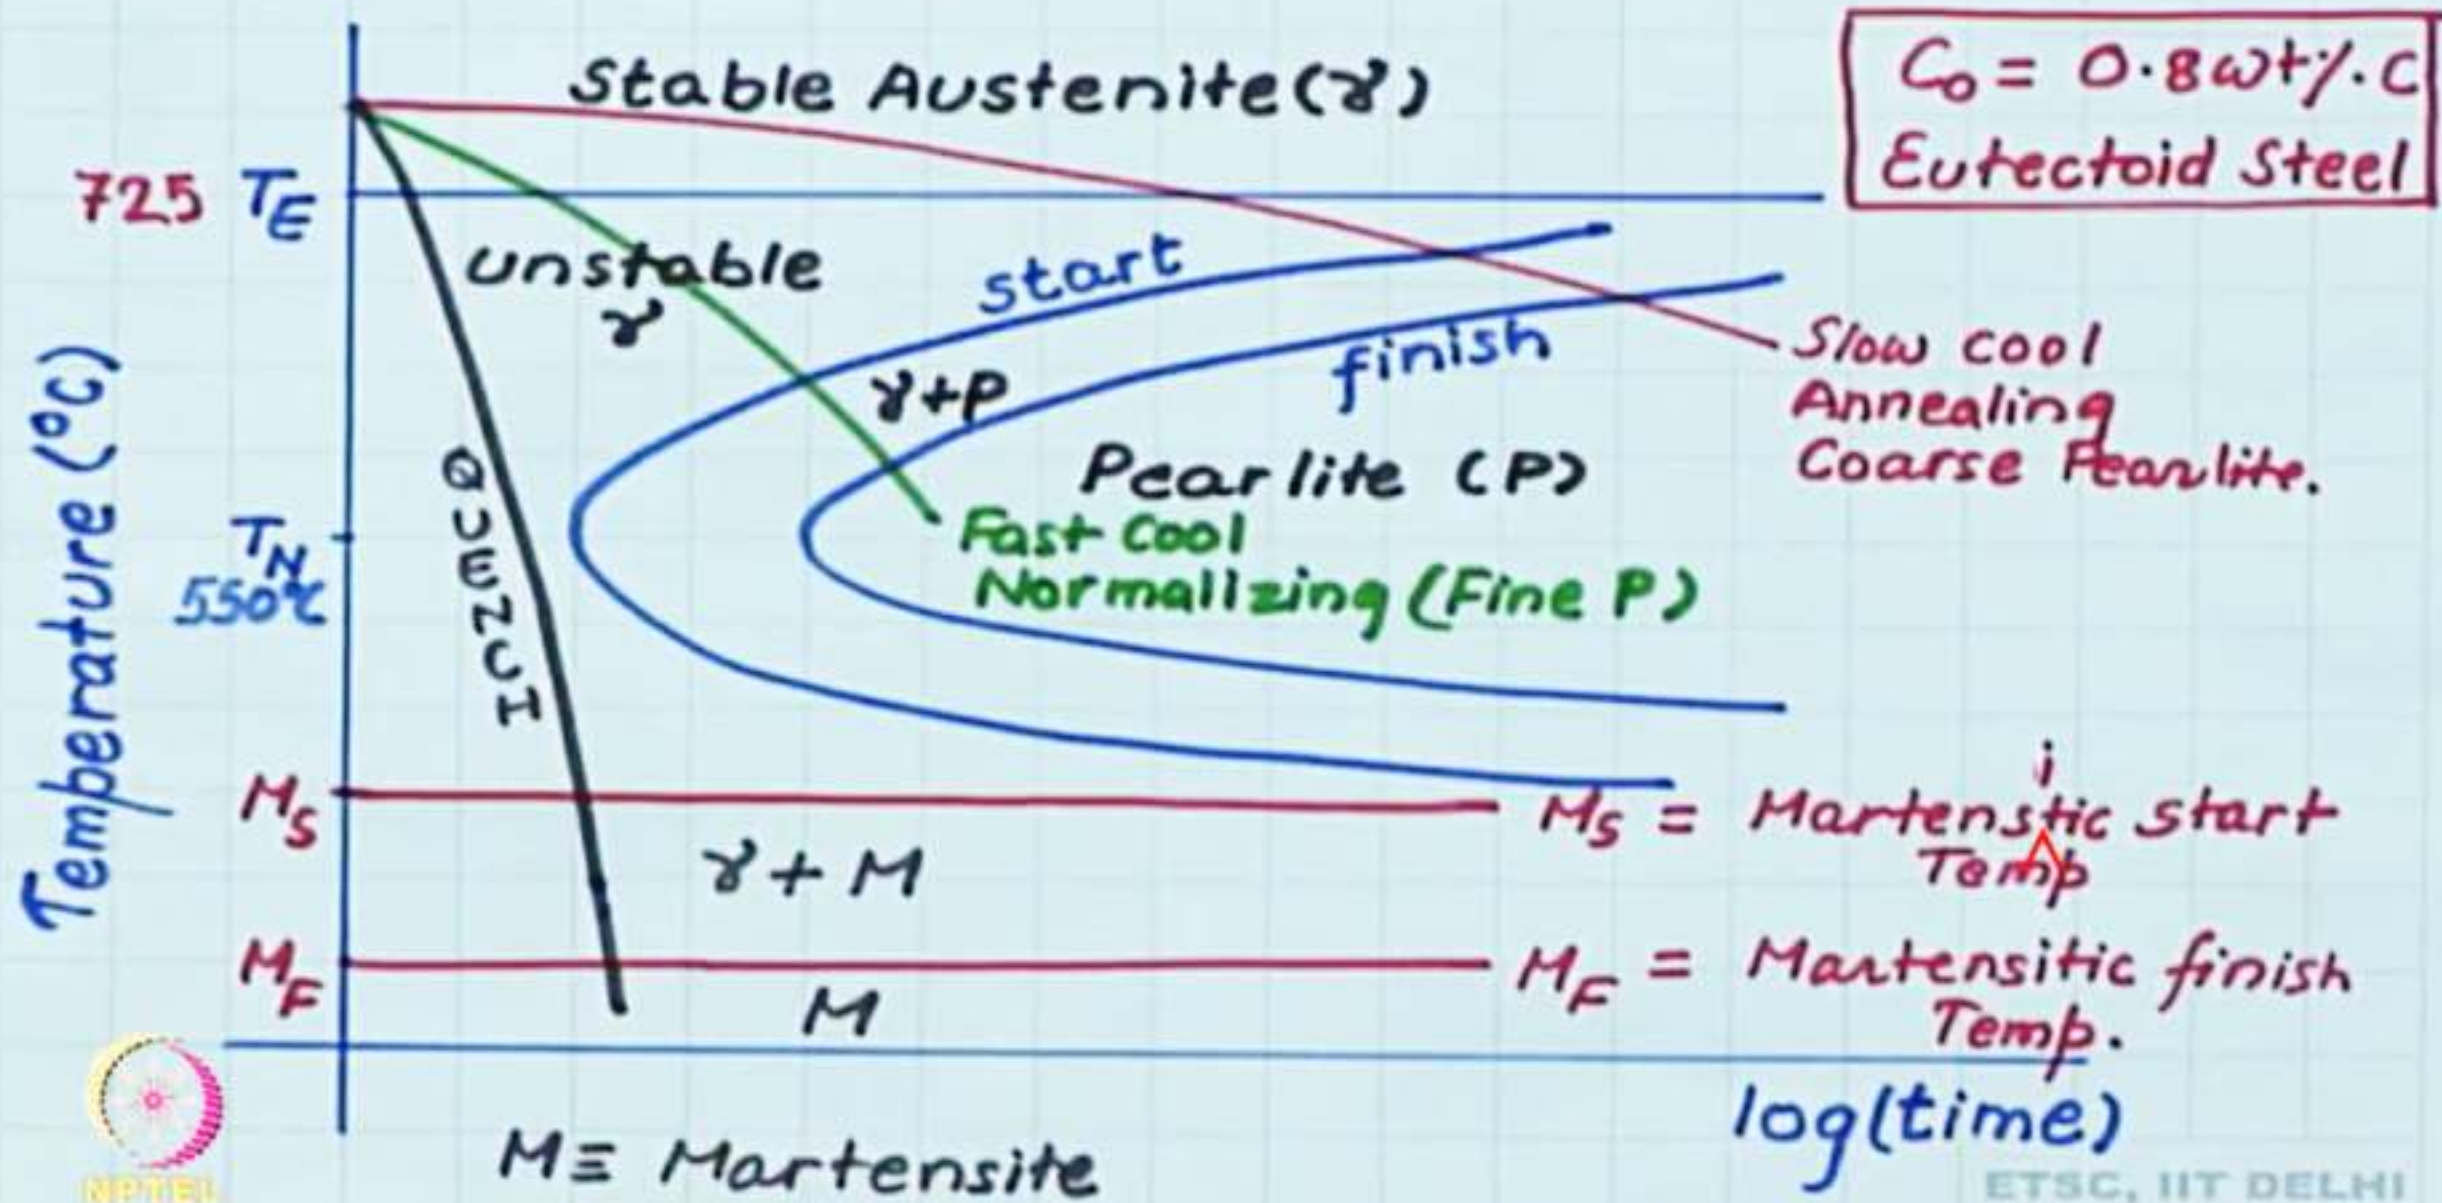 Stable Austenite (γ)
C₀ = 0.8 wt%. C
Eutectoid Steel
725 T_E
unstable
γ
start
finish
γ+P
Slow cool
Annealing
Coarse Pearlite.
Pearlite (P)
Fast Cool
Normalizing (Fine P)
T_N
550°C
QUENCH
Temperature (°C)
M_S
M_S = Martenstic start
i
Temp
γ + M
M_F
M_F = Martensitic finish
Temp.
M
log(time)
M ≡ Martensite
NPTEL
ETSC, IIT DELHI